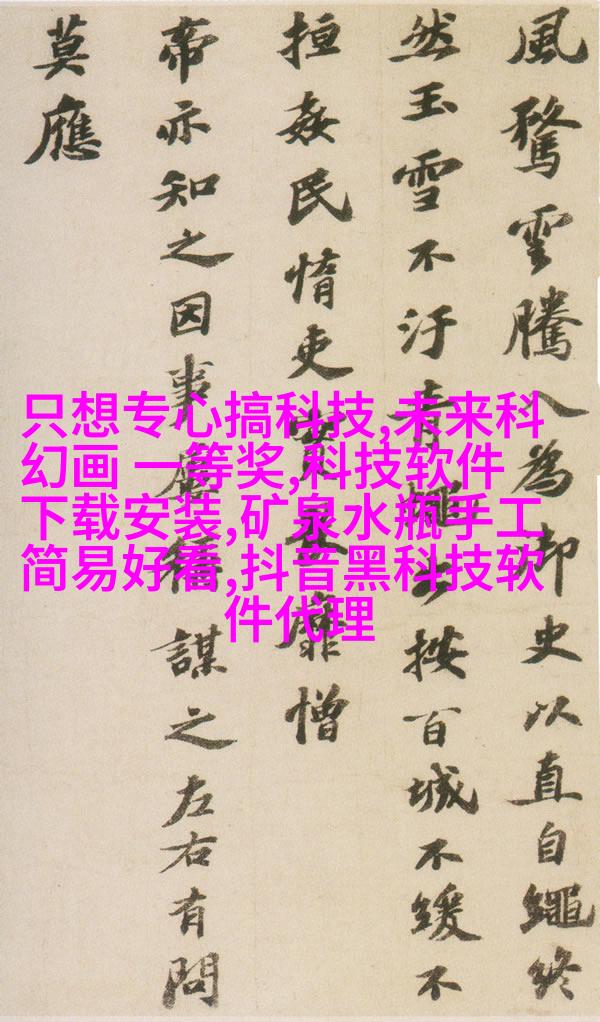 風騖雲騰入為御史以直自繩終
然玉雪不汙青蠅按百城不緩不
搄姦民惰吏實畏靡憎
帝亦知之因事屢稱謀之左右有問
莫應
只想专心搞科技,未来科
幻画 一等奖,科技软件
下载安装,矿泉水瓶手工
简易好看,抖音黑科技软
件代理